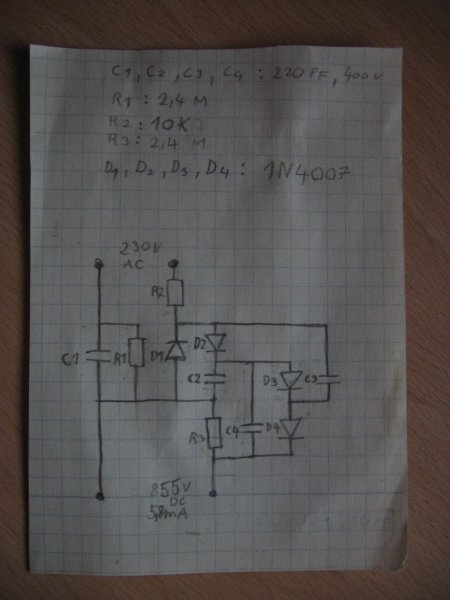 C1, C2, C3, C4 : 220 PF, 400V
R1 : 2,4 M
R2 : 10K Ω
R3 : 2,4 M
D1, D2, D3, D4 : 1N4007
230V
AC
R2
C1
R1
D1
D2
C2
D3
C3
R3
C4
D4
855V
DC
5,8mA